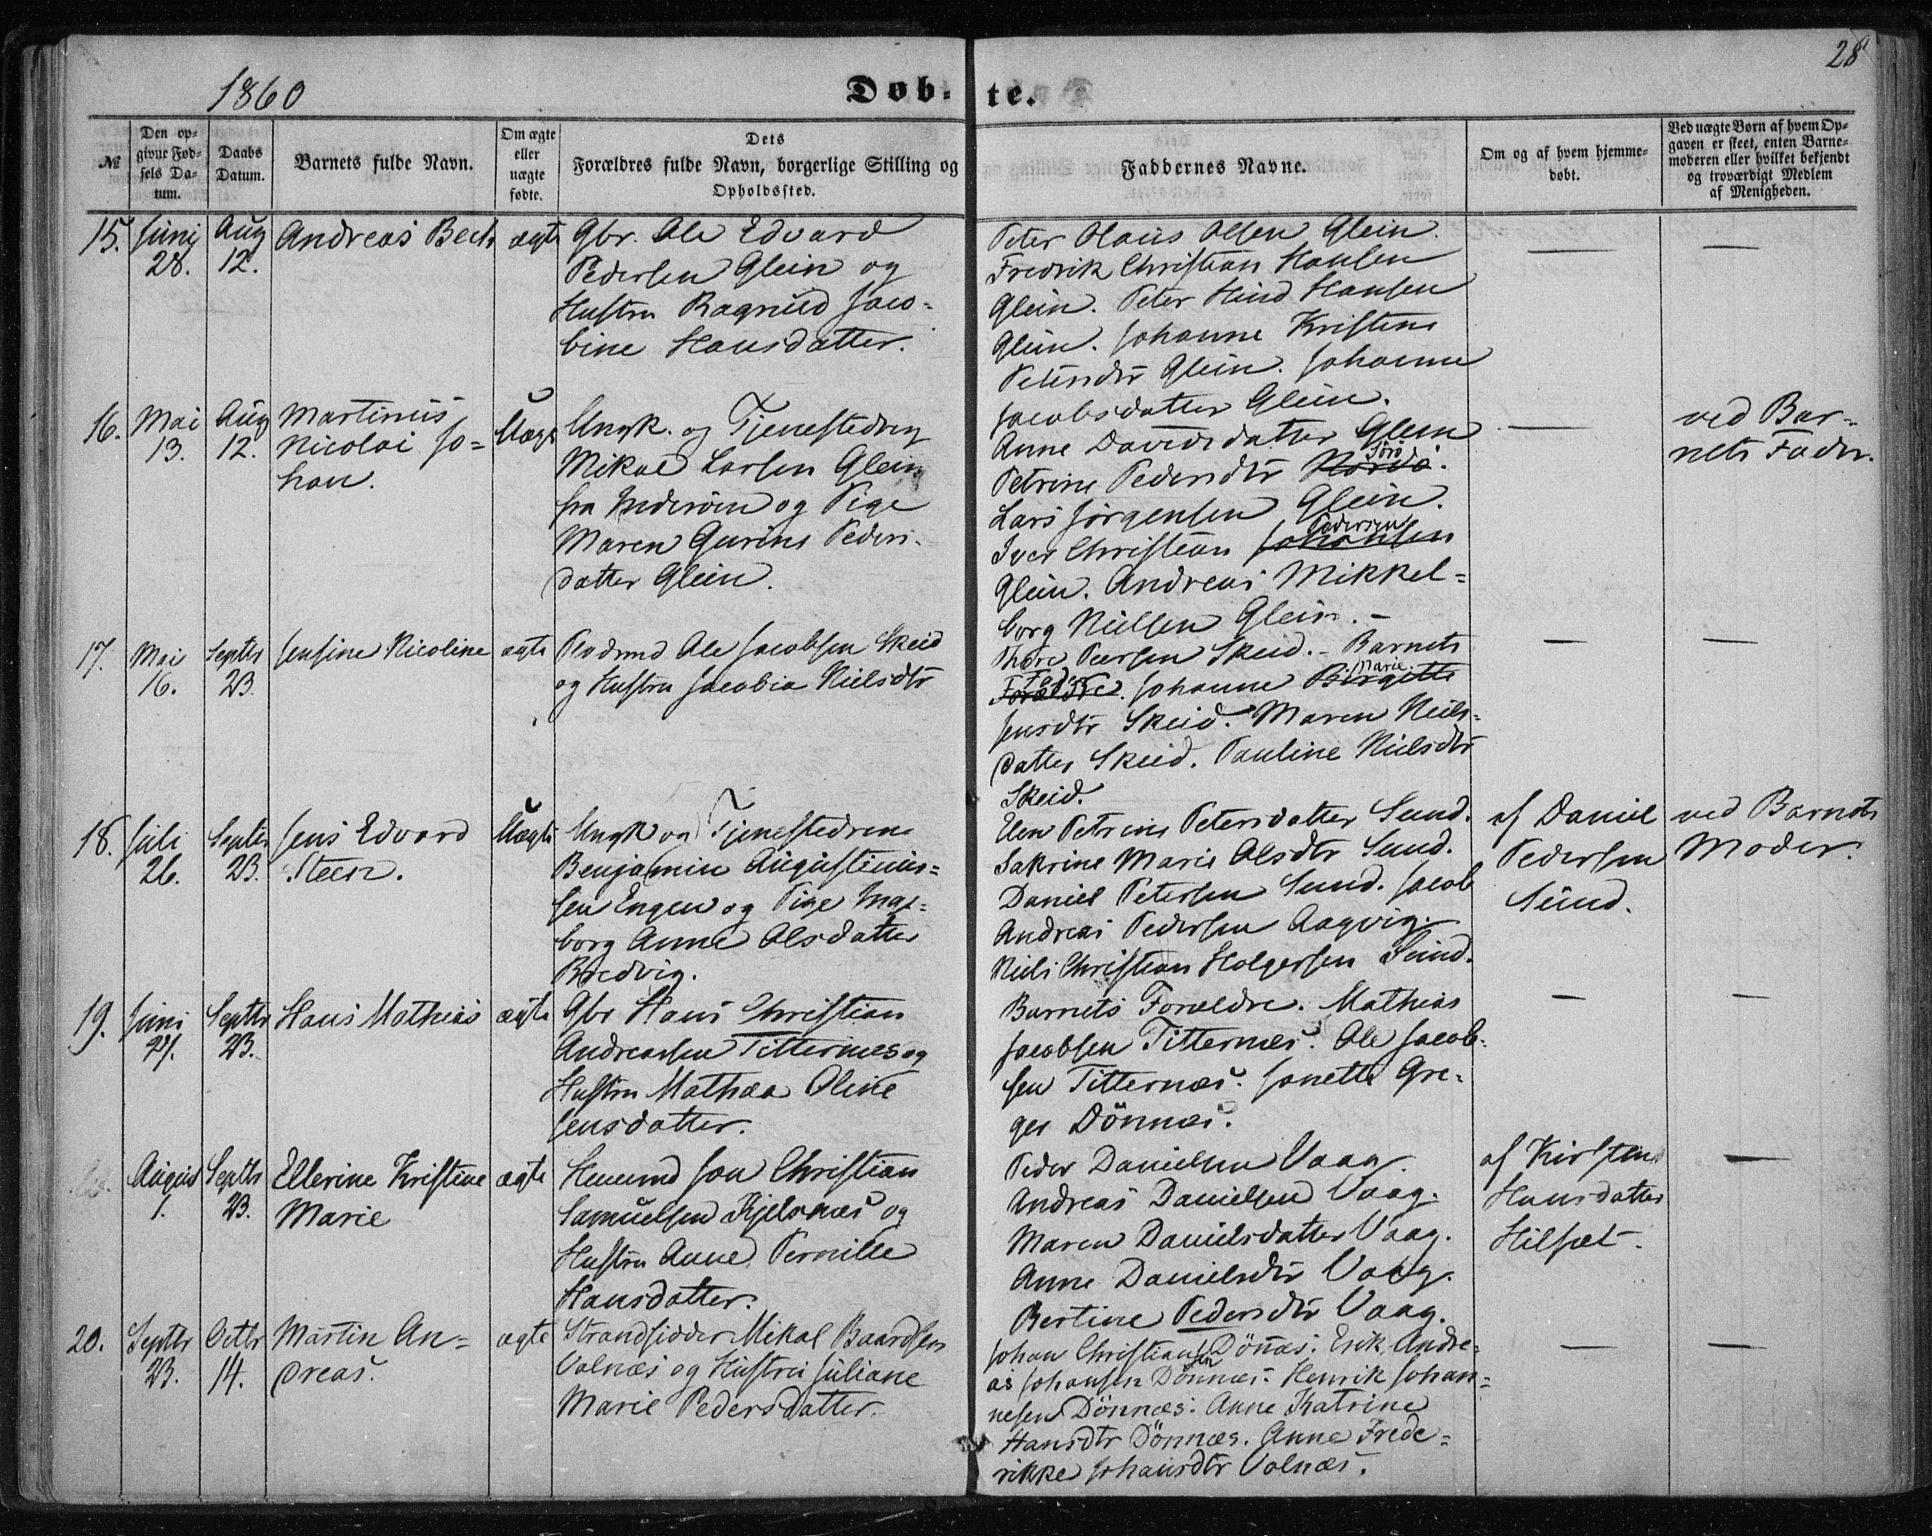 28
1860
Døb-te.
№
Den opgivne Fødsels Datum.
Daabs Datum.
Barnets fulde Navn.
Om ægte eller uægte fødte.
Dets Forældres fulde Navn, borgerlige Stilling og Opholdssted.
Faddernes Navne.
Om og af hvem hjemmedøbt.
Ved uægte Børn af hvem Opgaven er skeet, enten Barnemoderen eller hvilket bekjendt og troværdigt Medlem af Menigheden.
15. Junij 28. Aug 12. Andreas Beck ægte
Gbr. Ole Edvard
Pedersen Glein og
Hustru Ragnild Jaco-
bine Hansdatter.
Peter Olaus Olsen Glein.
Fredrik Christian Hansen
Glein. Peter Hind Hansen
Glein. Johanne Kristine
Petersdtr Glein. Johanne
Jacobsdatter Glein.
— —
16. Mai 13. Aug 12.
Martinus
Nicolai Jo-
han.
Uægte
Ungk. og Tjenestedreng
Mikal Larsen Glein
fra Inderøen og Pige
Maren Gurine Peders-
datter Glein.
Anne Davidsdatter Glein
Petrine Pedersdtr Nordø Sørø.
Lars Jørgensen Glein.
Iver Christian Johansen Pedersen
Glein. Andreas Mikkel-
borg Nielsen Glein. –
—
ved Bar-
nets Fader.
17. Mai 16. Septbr 23. Jensine Nicoline ægte
Pladsmd Ole Jacobsen Skeid
og Hustru Jacobia Nielsdtr
Thore Peersen Skeid. – Barnets
Forældre Fader. Johanne Birgitte Marie
Jensdtr Skeid. Maren Niels-
datter Skeid. Pauline Nielsdtr
Skeid.
— —
18. Juli 26. Septbr 23.
Jens Edvard
Steen.
Uægte
Ungk og Tjenestedreng
Benjamin Augustinus-
sen Engen og Pige Inge-
borg Anne Olsdatter
Bredvig.
Elen Petrine Petersdatter Sund.
Sakrine Marie Olsdtr Sund.
Daniel Petersen Sund. Jacob
Andreas Pedersen Aagvig.
Niels Christian Holgersen Sund.
af Daniel
Pedersen
Sund.
ved Barnets
Moder.
19. Juni 21. Septbr 23. Hans Mathias ægte
Gbr Hans Christian
Andreassen Titternæs og
Hustru Mathea Oline
Jensdatter.
Barnets Forældre. Mathias
Jacobsen Titternæs. Ole Jacob-
sen Titternæs. Janette Gre-
ger Dönnæs.
— —
August 1. Septbr 23.
Ellerine Kristine
Marie
ægte
Huusmd Jon Christian
Samuelsen Kjelsnæs og
Hustru Anne Pernille
Hansdatter.
Peder Danielsen Vaag.
Andreas Danielsen Vaag.
Maren Danielsdatter Vaag.
Anne Danielsdtr Vaag.
Bertine Pedersdtr Vaag.
af Kirstine
Hansdatter
Hilsæt.
—
20. Septbr 23. Octbr 14.
Martin An-
dreas.
ægte
Strandsidder Mikal Baardsen
Valnæs og Hustru Juliane
Marie Pedersdatter.
Johan Christiansen Dönnæs. Erik Andre-
as Johansen Dönnæs. Henrik Johan-
nesen Dönnæs. Anne Katrine
Hansdtr Dönnæs. Anne Frede-
rikke Johansdtr Valnæs.
— —